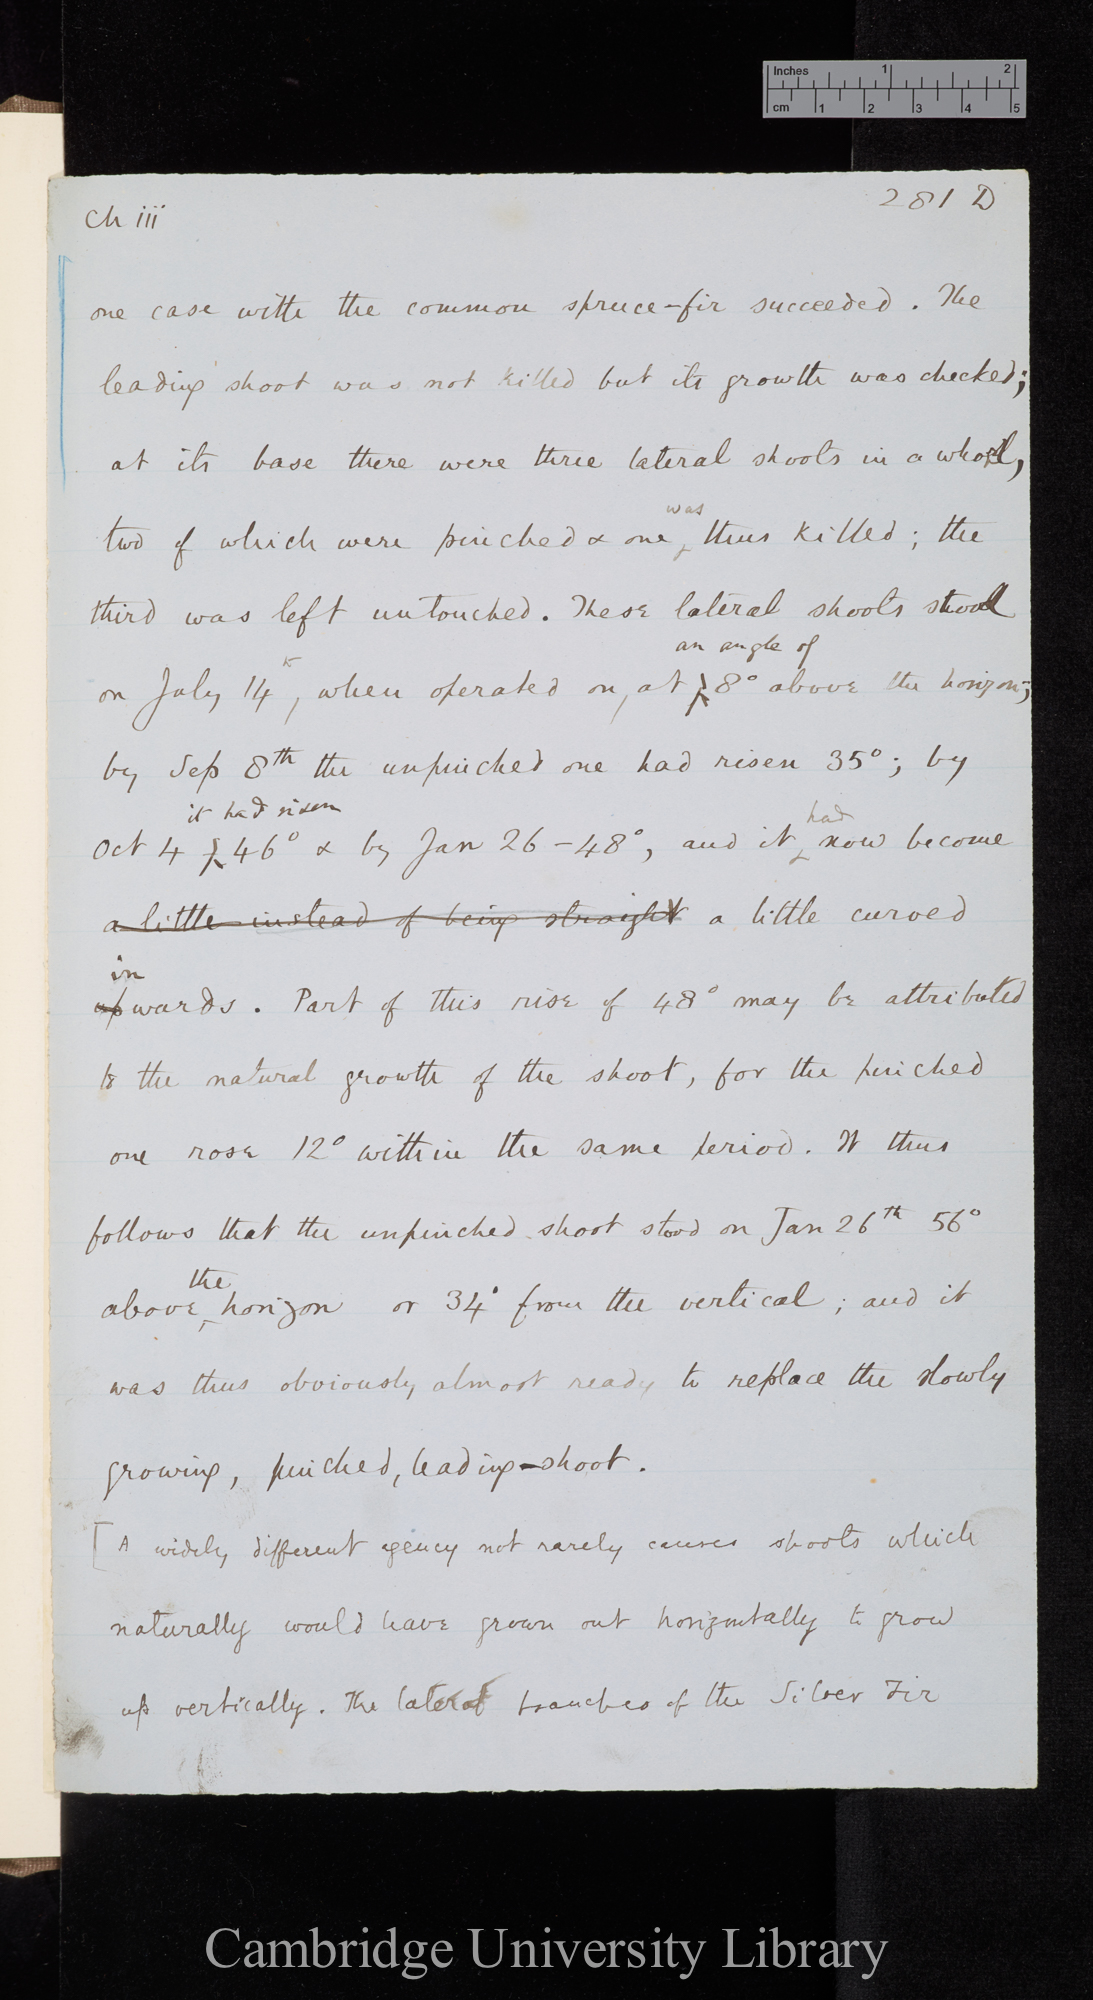 Inches 1 2
cm 1 2 3 4 5
Ch iii
281 D
one case with the common spruce-fir succeeded. The
leading shoot was not killed but its growth was checked;
at its base there were three lateral shoots in a whorl,
was
two of which were pinched & one thus killed; the
third was left untouched. These lateral shoots stood
an angle of
on July 14th, when operated on, at 8° above the horizon;
by Sep 8th the unpinched one had risen 35°; by
it had risen
had
Oct 4 46° & by Jan 26 - 48°, and it now become
a little instead of being straight a little curved
in
upwards. Part of this rise of 48° may be attributed
to the natural growth of the shoot, for the pinched
one rose 12° within the same period. It thus
follows that the unpinched shoot stood on Jan 26th 56°
the
above horizon or 34° from the vertical; and it
was thus obviously almost ready to replace the slowly
growing, pinched, leading-shoot.
[A widely different agency not rarely causes shoots which
naturally would have grown out horizontally to grow
up vertically. The lateral branches of the Silver Fir
Cambridge University Library